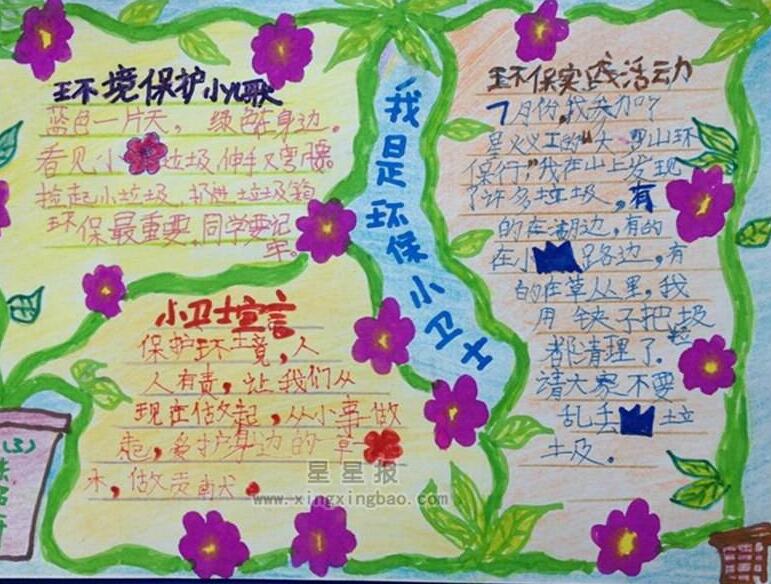 环境保护小儿歌
蓝色一片天，绿色在身边。
看见小垃圾,伸手又弯腰
捡起小垃圾,扔进垃圾箱
环保最重要,同学要记
牢。
小卫士宣言
保护环境，人
人有责，让我们从
现在做起，从小事做
起，爱护身边的一草一
木，做贡献。
我是环保小卫士
环保实践活动
7月份，我参加了
星火义工的"大罗山环
保行"，我在山上发现
了许多垃圾，有
的在湖边，有的
在小路边，有
的在草丛里，我
用铁子把垃圾
都清理了。
请大家不要
乱丢垃
圾。
(3)
星星报
www.xingxingbao.com